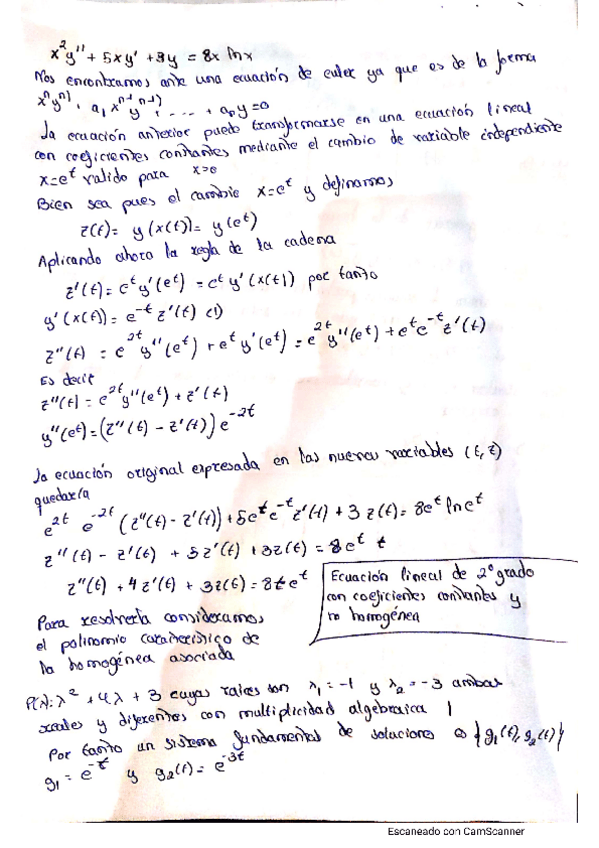 x²y'' + 5xy' + 3y = 8x lnx
Nos encontramos ante una ecuación de euler ya que es de la forma
xⁿyⁿ⁾ + a₁xⁿ⁻¹yⁿ⁻¹⁾ + .... + aₙy = 0
La ecuación anterior puede transformarse en una ecuación lineal
con coeficientes constantes mediante el cambio de variable independiente
x=eᵗ valido para x>0
Bien sea pues el cambio x=eᵗ y definamos
z(t) = y(x(t)) = y(eᵗ)
Aplicando ahora la regla de la cadena
z'(t) = eᵗy'(eᵗ) = eᵗ y'(x(t)) por tanto
y'(x(t)) = e⁻ᵗ z'(t) (1)
z''(t) = e²ᵗy''(eᵗ) + eᵗ y'(eᵗ) = e²ᵗ y''(eᵗ) + eᵗe⁻ᵗ z'(t)
Es decir
z''(t) = e²ᵗy''(eᵗ) + z'(t)
y''(eᵗ) = (z''(t) - z'(t)) e⁻²ᵗ
La ecuación original expresada en las nuevas variables (t, z)
quedaría
e²ᵗ e⁻²ᵗ (z''(t) - z'(t)) + 5eᵗe⁻ᵗ z'(t) + 3 z(t) = 8eᵗ ln eᵗ
z''(t) - z'(t) + 5z'(t) + 3z(t) = 8eᵗ t
z''(t) + 4z'(t) + 3z(t) = 8teᵗ
Ecuación lineal de 2º grado
con coeficientes constantes y
no homogénea
Para resolverla consideramos
el polinomio característico de
la homogénea asociada
P(λ): λ² + 4λ + 3 cuyas raices son λ₁ = -1 y λ₂ = -3 ambas
reales y diferentes con multiplicidad algebraica 1
Por tanto un sistema fundamental de soluciones es {g₁(t), g₂(t)}
g₁ = e⁻ᵗ y g₂(t) = e⁻³ᵗ
Escaneado con CamScanner